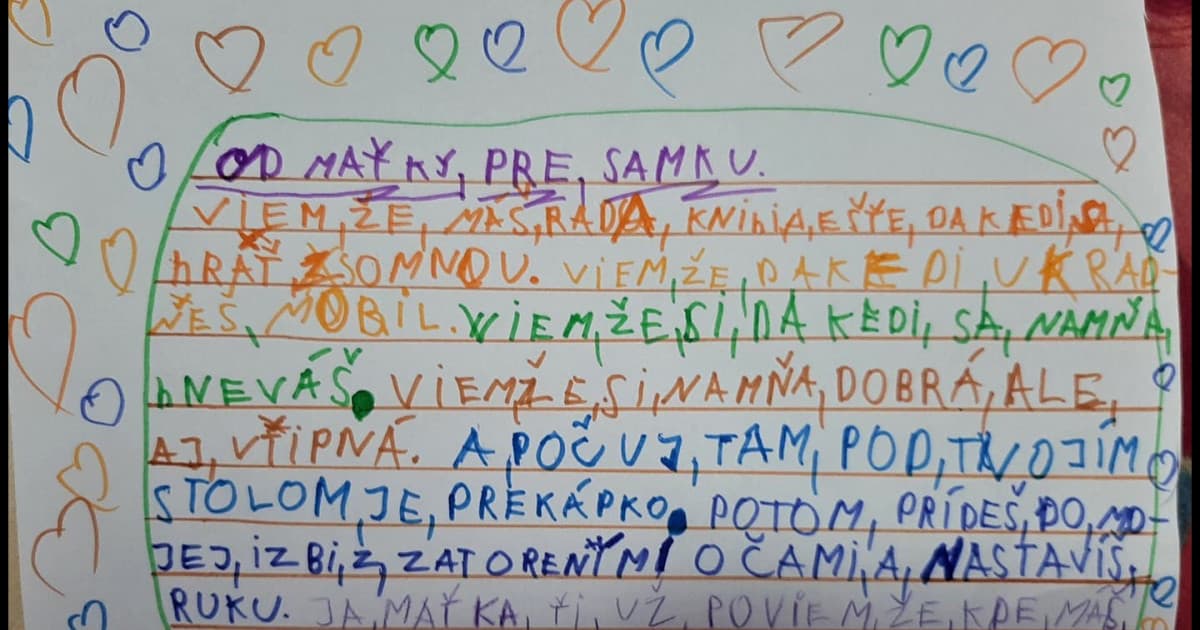 OD MAŤKY, PRE, SAMKU.
VIEM, ŽE, MÁŠ, RADA, KNIhIA, EŠŤE, DAKEDI, SA,
hRÁŤ, SOMNOU. VIEM, ŽE, DAKEDI, UKRAD-
ŇEŠ, MOBIL. VIEM, ŽE, SI, DAKEDI, SA, NAMŇA,
hNEVÁŠ. VIEM, ŽE, SI, NAMŇA, DOBRÁ, ALE,
AJ, VŤIPNÁ. A, POČUJ, TAM, POD, TVOJÍM
STOLOM, JE, PREKÁPKO. POTOM, PRÍDEŠ, DO, MO-
JEJ, IZBI, Z, ZATORENÝMI OČAMI, A, NASTAVÍŠ,
RUKU. JA, MAŤKA, ŤI, UŽ, POVIEM, ŽE, KDE, MÁŠ,